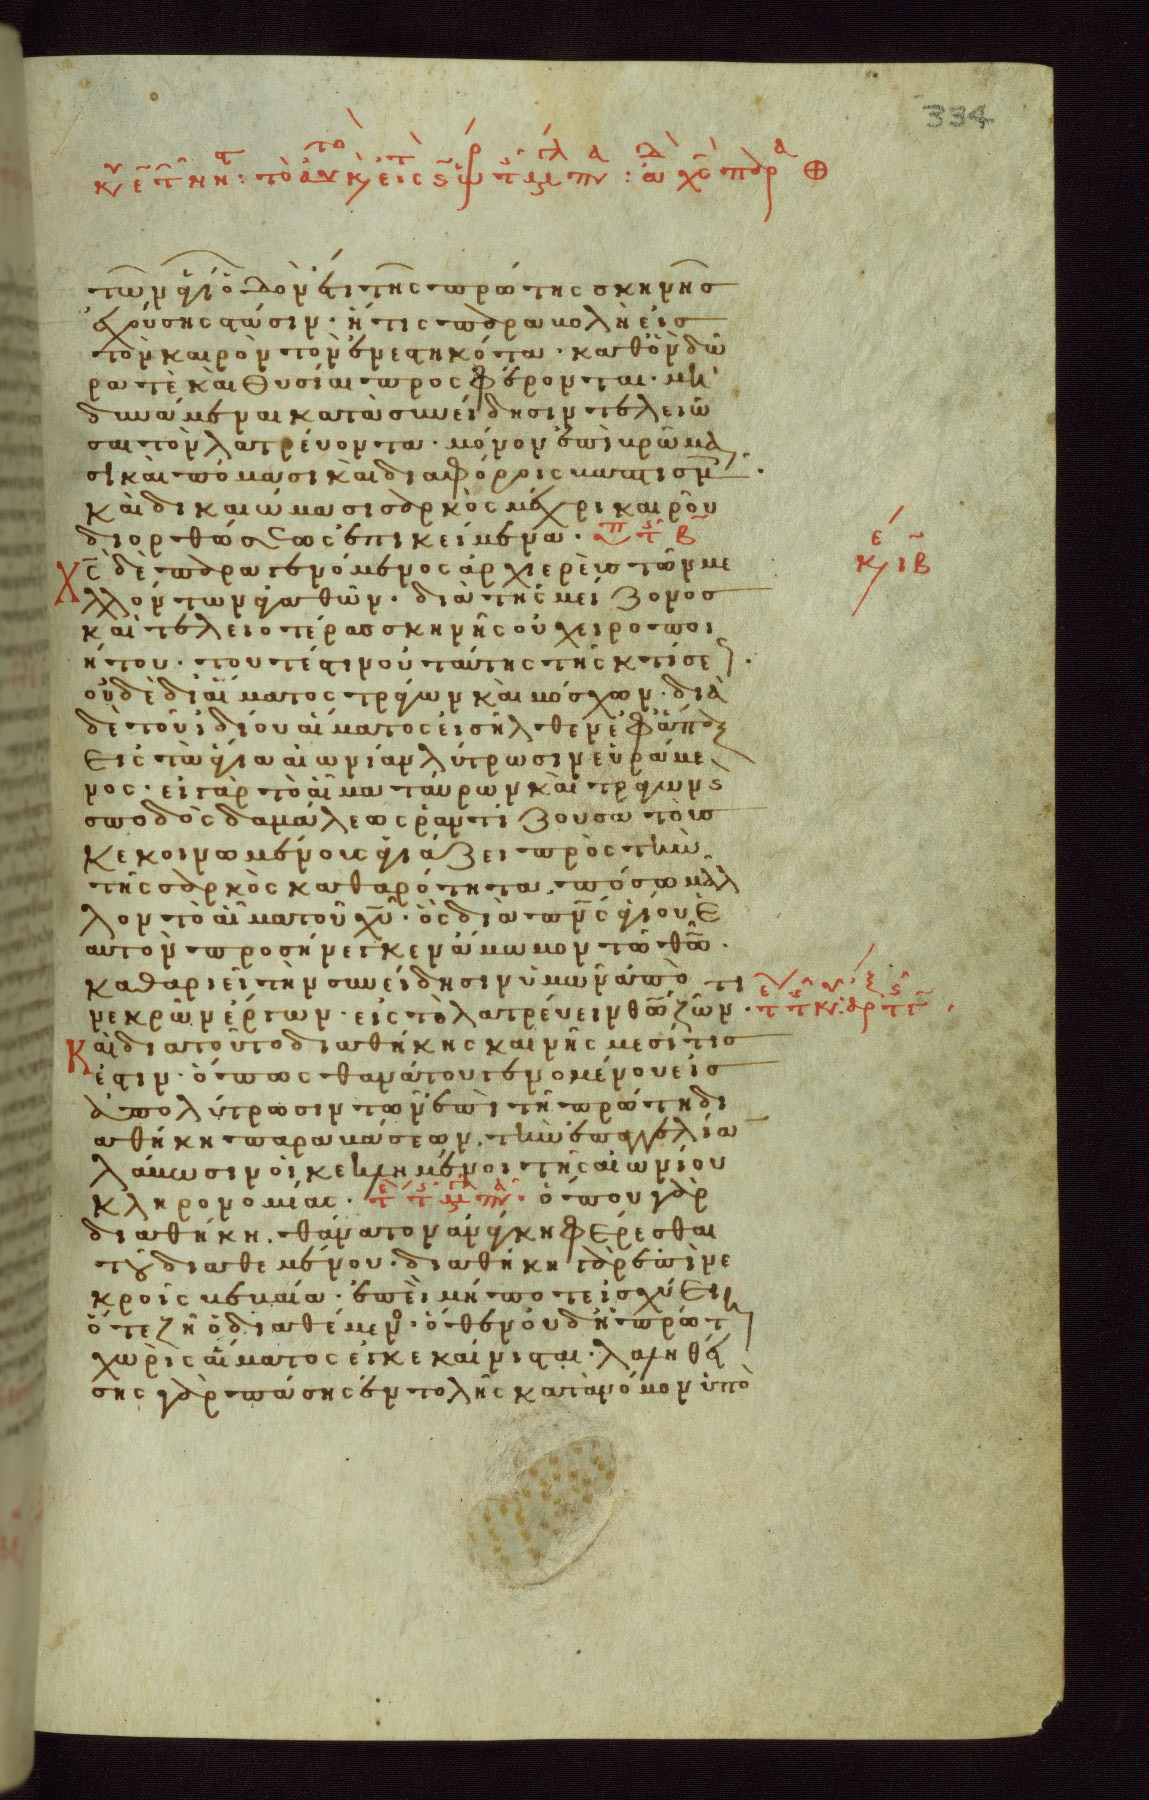 334
τῶν ἁγίων ὁδὸν ἔτι τῆς πρώτης σκηνῆς
ἐχούσης στάσιν· ἥτις παραβολὴ εἰς
τὸν καιρὸν τὸν ἐνεστηκότα· καθ' ὃν δῶ
ρά τε καὶ θυσίαι προσφέρονται· μὴ
δυνάμεναι κατὰ συνείδησιν τελειῶ
σαι τὸν λατρεύοντα· μόνον ἐπὶ βρώμα
σι καὶ πόμασι καὶ διαφόροις βαπτισμ
καὶ δικαιώμασι σαρκὸς μέχρι καιροῦ
διορθώσεως ἐπικείμενα·
Χς δὲ παραγενόμενος ἀρχιερεὺς τῶν με
λλόντων ἀγαθῶν· διὰ τῆς μείζονος
καὶ τελειοτέρας σκηνῆς οὐ χειροποι
ήτου· τουτέστιν οὐ ταύτης τῆς κτίσε
οὐδὲ δι' αἵματος τράγων καὶ μόσχων· διὰ
δὲ τοῦ ἰδίου αἵματος εἰσῆλθεν ἐφάπαξ
εἰς τὰ ἅγια αἰωνίαν λύτρωσιν εὑράμε
νος· εἰ γὰρ τὸ αἷμα ταύρων καὶ τράγων ϛ
σποδὸς δαμάλεως ῥαντίζουσα τοὺς
κεκοινωμένους ἁγιάζει πρὸς τὴν
τῆς σαρκὸς καθαρότητα, πόσω μᾶλ
λον τὸ αἷμα τοῦ χυ· ὃς διὰ πνς ἁγίου ἑ
αυτὸν προσήνεγκεν ἄμωμον τῶ θω·
καθαριεῖ τὴν συνείδησιν ὑμῶν ἀπὸ
νεκρῶν ἔργων· εἰς τὸ λατρεύειν θω ζῶντι·
Καὶ διὰ τοῦτο διαθήκης καινῆς μεσίτης
ἐστιν· ὅπως θανάτου γενομένου εἰς
ἀπολύτρωσιν τῶν ἐπὶ τῆ πρώτη δι
αθήκη παραβάσεων· τὴν ἐπαγγελίαν
λάβωσιν οἱ κεκλημένοι τῆς αἰωνίου
κληρονομίας· ὅπου γὰρ
διαθήκη· θάνατον ἀνάγκη φέρεσθαι
τοῦ διαθεμένου· διαθήκη γὰρ ἐπὶ νε
κροῖς βεβαία· ἐπεὶ μήποτε ἰσχύει
ὅτε ζῆ ὁ διαθέμεν· ὅθεν οὐδ' ἡ πρώτ
χωρὶς αἵματος ἐγκεκαίνισται· λαληθεί
σης γὰρ πάσης ἐντολῆς κατὰ νόμον ὑπὸ